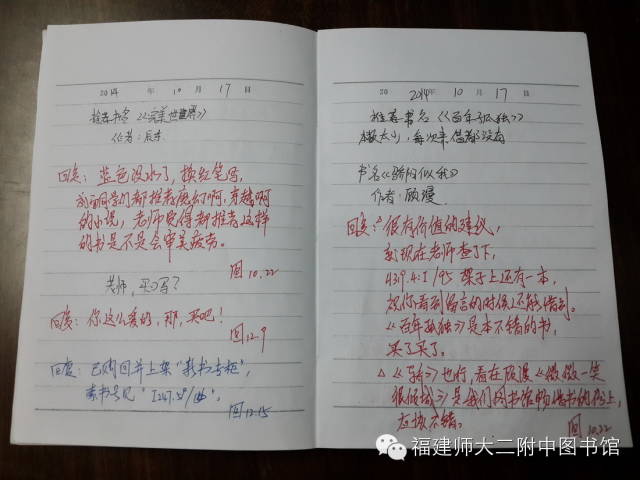 2014 年 10 月 17 日
推荐书名《完美世界》
作者:辰东
回复:蓝色没水了,换红笔写,
前面同学们都推荐魔幻啊,穿越啊
的小说,老师觉得都推荐这样
的书是不是会审美疲劳。
图10.22
老师,买了吗?
回复:你这么爱的,那,买吧!
图12.9
回复:已购回并上架“新书专柜”,
索书号见“I247.5/
图12.15
20 2014年 10 月 17 日
推荐书名《百年孤独》
本数太少,每次来借都没有
书名《骄阳似我》
作者:顾漫
回复:△很有价值的建议,
到现在老师查了下,
I/95 架子上还有一本,
祝你看到留言的时候还能借到。
《百年孤独》是本不错的书,
买了买了。
△《骄》也行,看在顾漫《微微一笑
很倾城》是我们图书馆畅借书的份上,
应该不错。
图10.22
福建师大二附中图书馆